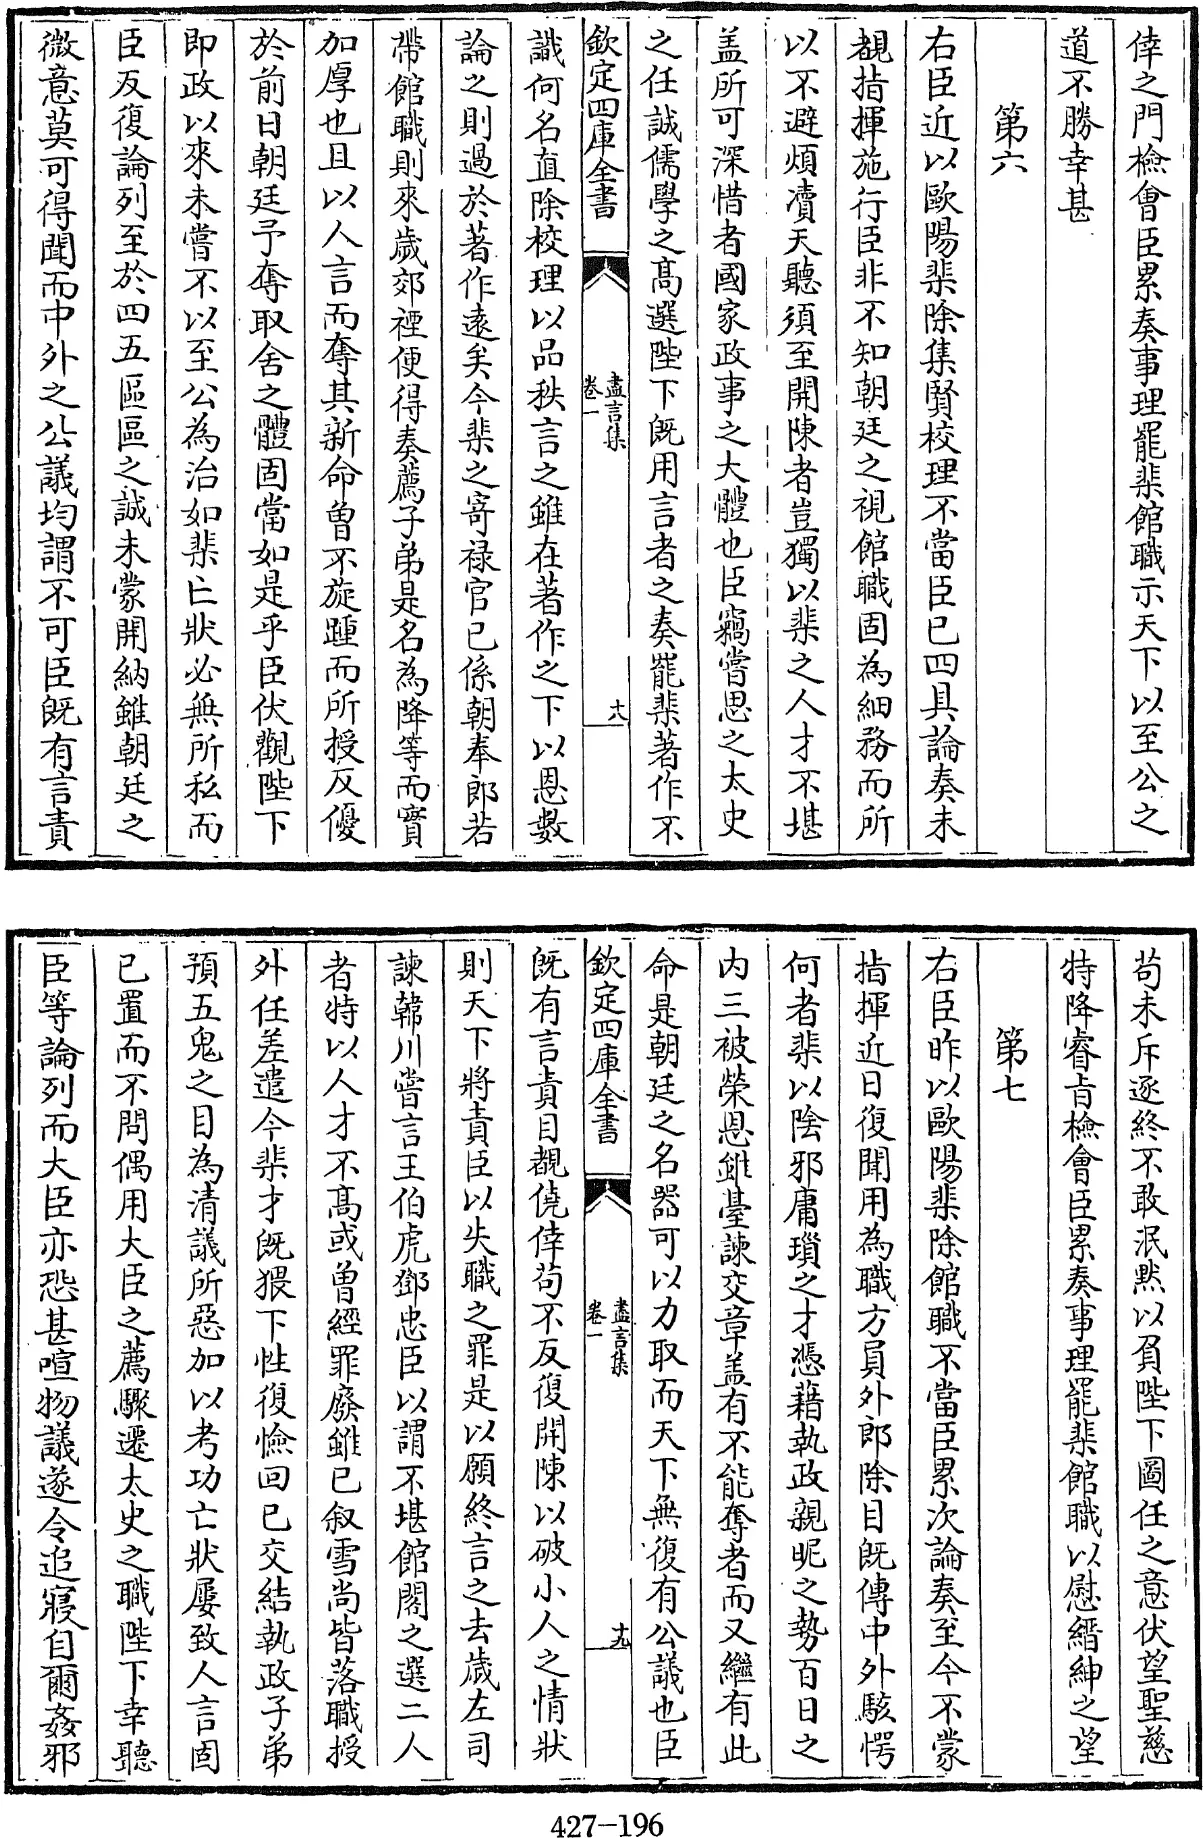 倖之門檢會臣累奏事理罷棐館職示天下以至公之
道不勝幸甚
第六
右臣近以歐陽棐除集賢校理不當臣已四具論奏未
覩指揮施行臣非不知朝廷之視館職固為細務而所
以不避煩瀆天聽須至開陳者豈獨以棐之人才不堪
盖所可深惜者國家政事之大體也臣竊嘗思之太史
之任誠儒學之髙選陛下既用言者之奏罷棐著作不
欽定四庫全書
盡言集
卷一
十八
識何名直除校理以品秩言之雖在著作之下以恩數
論之則過於著作遠矣今棐之寄禄官已係朝奉郎若
帶館職則來歲郊禋便得奏薦子弟是名為降等而實
加厚也且以人言而奪其新命曽不旋踵而所授反優
於前日朝廷予奪取舍之體固當如是乎臣伏觀陛下
即政以來未嘗不以至公為治如棐亡狀必無所私而
臣反復論列至於四五區區之誠未蒙開納雖朝廷之
微意莫可得聞而中外之公議均謂不可臣既有言責
苟未斥逐終不敢泯默以負陛下圖任之意伏望聖慈
特降睿旨檢會臣累奏事理罷棐館職以慰縉紳之望
第七
右臣昨以歐陽棐除館職不當臣累次論奏至今不蒙
指揮近日復聞用為職方員外郎除目既傳中外駭愕
何者棐以隂邪庸瑣之才憑藉執政親昵之勢百日之
内三被榮恩雖臺諫交章盖有不能奪者而又繼有此
命是朝廷之名器可以力取而天下無復有公議也臣
欽定四庫全書
盡言集
卷一
十九
既有言責目覩僥倖苟不反復開陳以破小人之情狀
則天下將責臣以失職之罪是以願終言之去歲左司
諫韓川嘗言王伯虎鄧忠臣以謂不堪館閣之選二人
者特以人才不髙或曾經罪廢雖已叙雪尚皆落職授
外任差遣今棐才既猥下性復憸回已交結執政子弟
預五鬼之目為清議所惡加以考功亡狀屢致人言固
已置而不問偶用大臣之薦驟遷太史之職陛下幸聽
臣等論列而大臣亦恐甚喧物議遂令追寢自爾姦邪
427-196